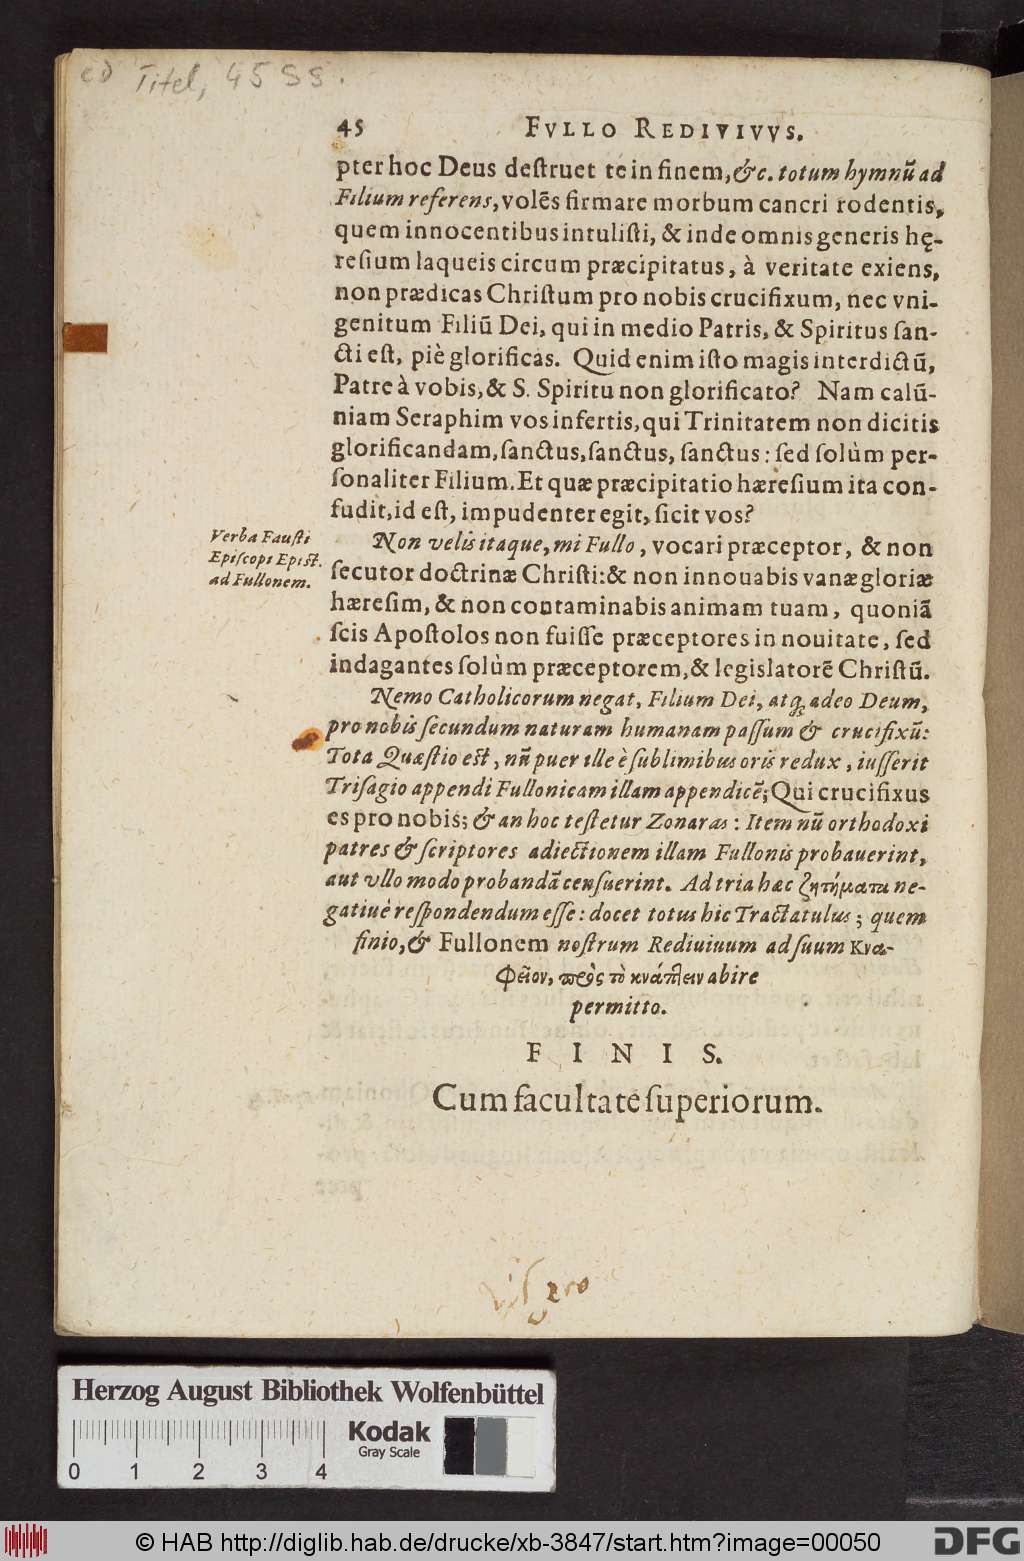 cð Titel, 45 SS.
45 FVLLO REDIVIVVS.
pter hoc Deus deſtruet te in finem, &c. totum hymnũ ad
Filium referens, volẽs firmare morbum cancri rodentis,
quem innocentibus intuliſti, & inde omnis generis hę-
reſium laqueis circum præcipitatus, à veritate exiens,
non prædicas Chriſtum pro nobis crucifixum, nec vni-
genitum Filiũ Dei, qui in medio Patris, & Spiritus ſan-
cti eſt, piè glorificas. Quid enim iſto magis interdictũ,
Patre à vobis, & S. Spiritu non glorificato? Nam calũ-
niam Seraphim vos infertis, qui Trinitatem non dicitis
glorificandam, ſanctus, ſanctus, ſanctus: ſed ſolùm per-
ſonaliter Filium. Et quæ præcipitatio hæreſium ita con-
fudit, id eſt, impudenter egit, ſicit vos?
Verba Fauſti
Epiſcopi Epiſt.
ad Fullonem.
Non velis itaque, mi Fullo, vocari præceptor, & non
ſecutor doctrinæ Chriſti: & non innouabis vanæ gloriæ
hæreſim, & non contaminabis animam tuam, quoniã
ſcis Apoſtolos non fuiſſe præceptores in nouitate, ſed
indagantes ſolùm præceptorem, & legislatorẽ Chriſtũ.
Nemo Catholicorum negat, Filium Dei, atq; adeo Deum,
pro nobis ſecundum naturam humanam paſſum & crucifixũ:
Tota Quæſtio eſt, nũ puer ille è ſublimibus oris redux, iuſſerit
Triſagio appendi Fullonicam illam appendicẽ; Qui crucifixus
es pro nobis; & an hoc teſtetur Zonaras: Item nũ orthodoxi
patres & ſcriptores adiectionem illam Fullonis probauerint,
aut vllo modo probandã cenſuerint. Ad tria hæc ζητήματα ne-
gatiuè reſpondendum eſſe: docet totus hic Tractatulus; quem
finio, & Fullonem noſtrum Rediuiuum ad ſuum Κνα-
φεῖον, πρὸς τὸ κνάπτειν abire
permitto.
F I N I S.
Cum facultate ſuperiorum.
Herzog August Bibliothek Wolfenbüttel
Kodak
Gray Scale
0 1 2 3 4
© HAB http://diglib.hab.de/drucke/xb-3847/start.htm?image=00050
DFG